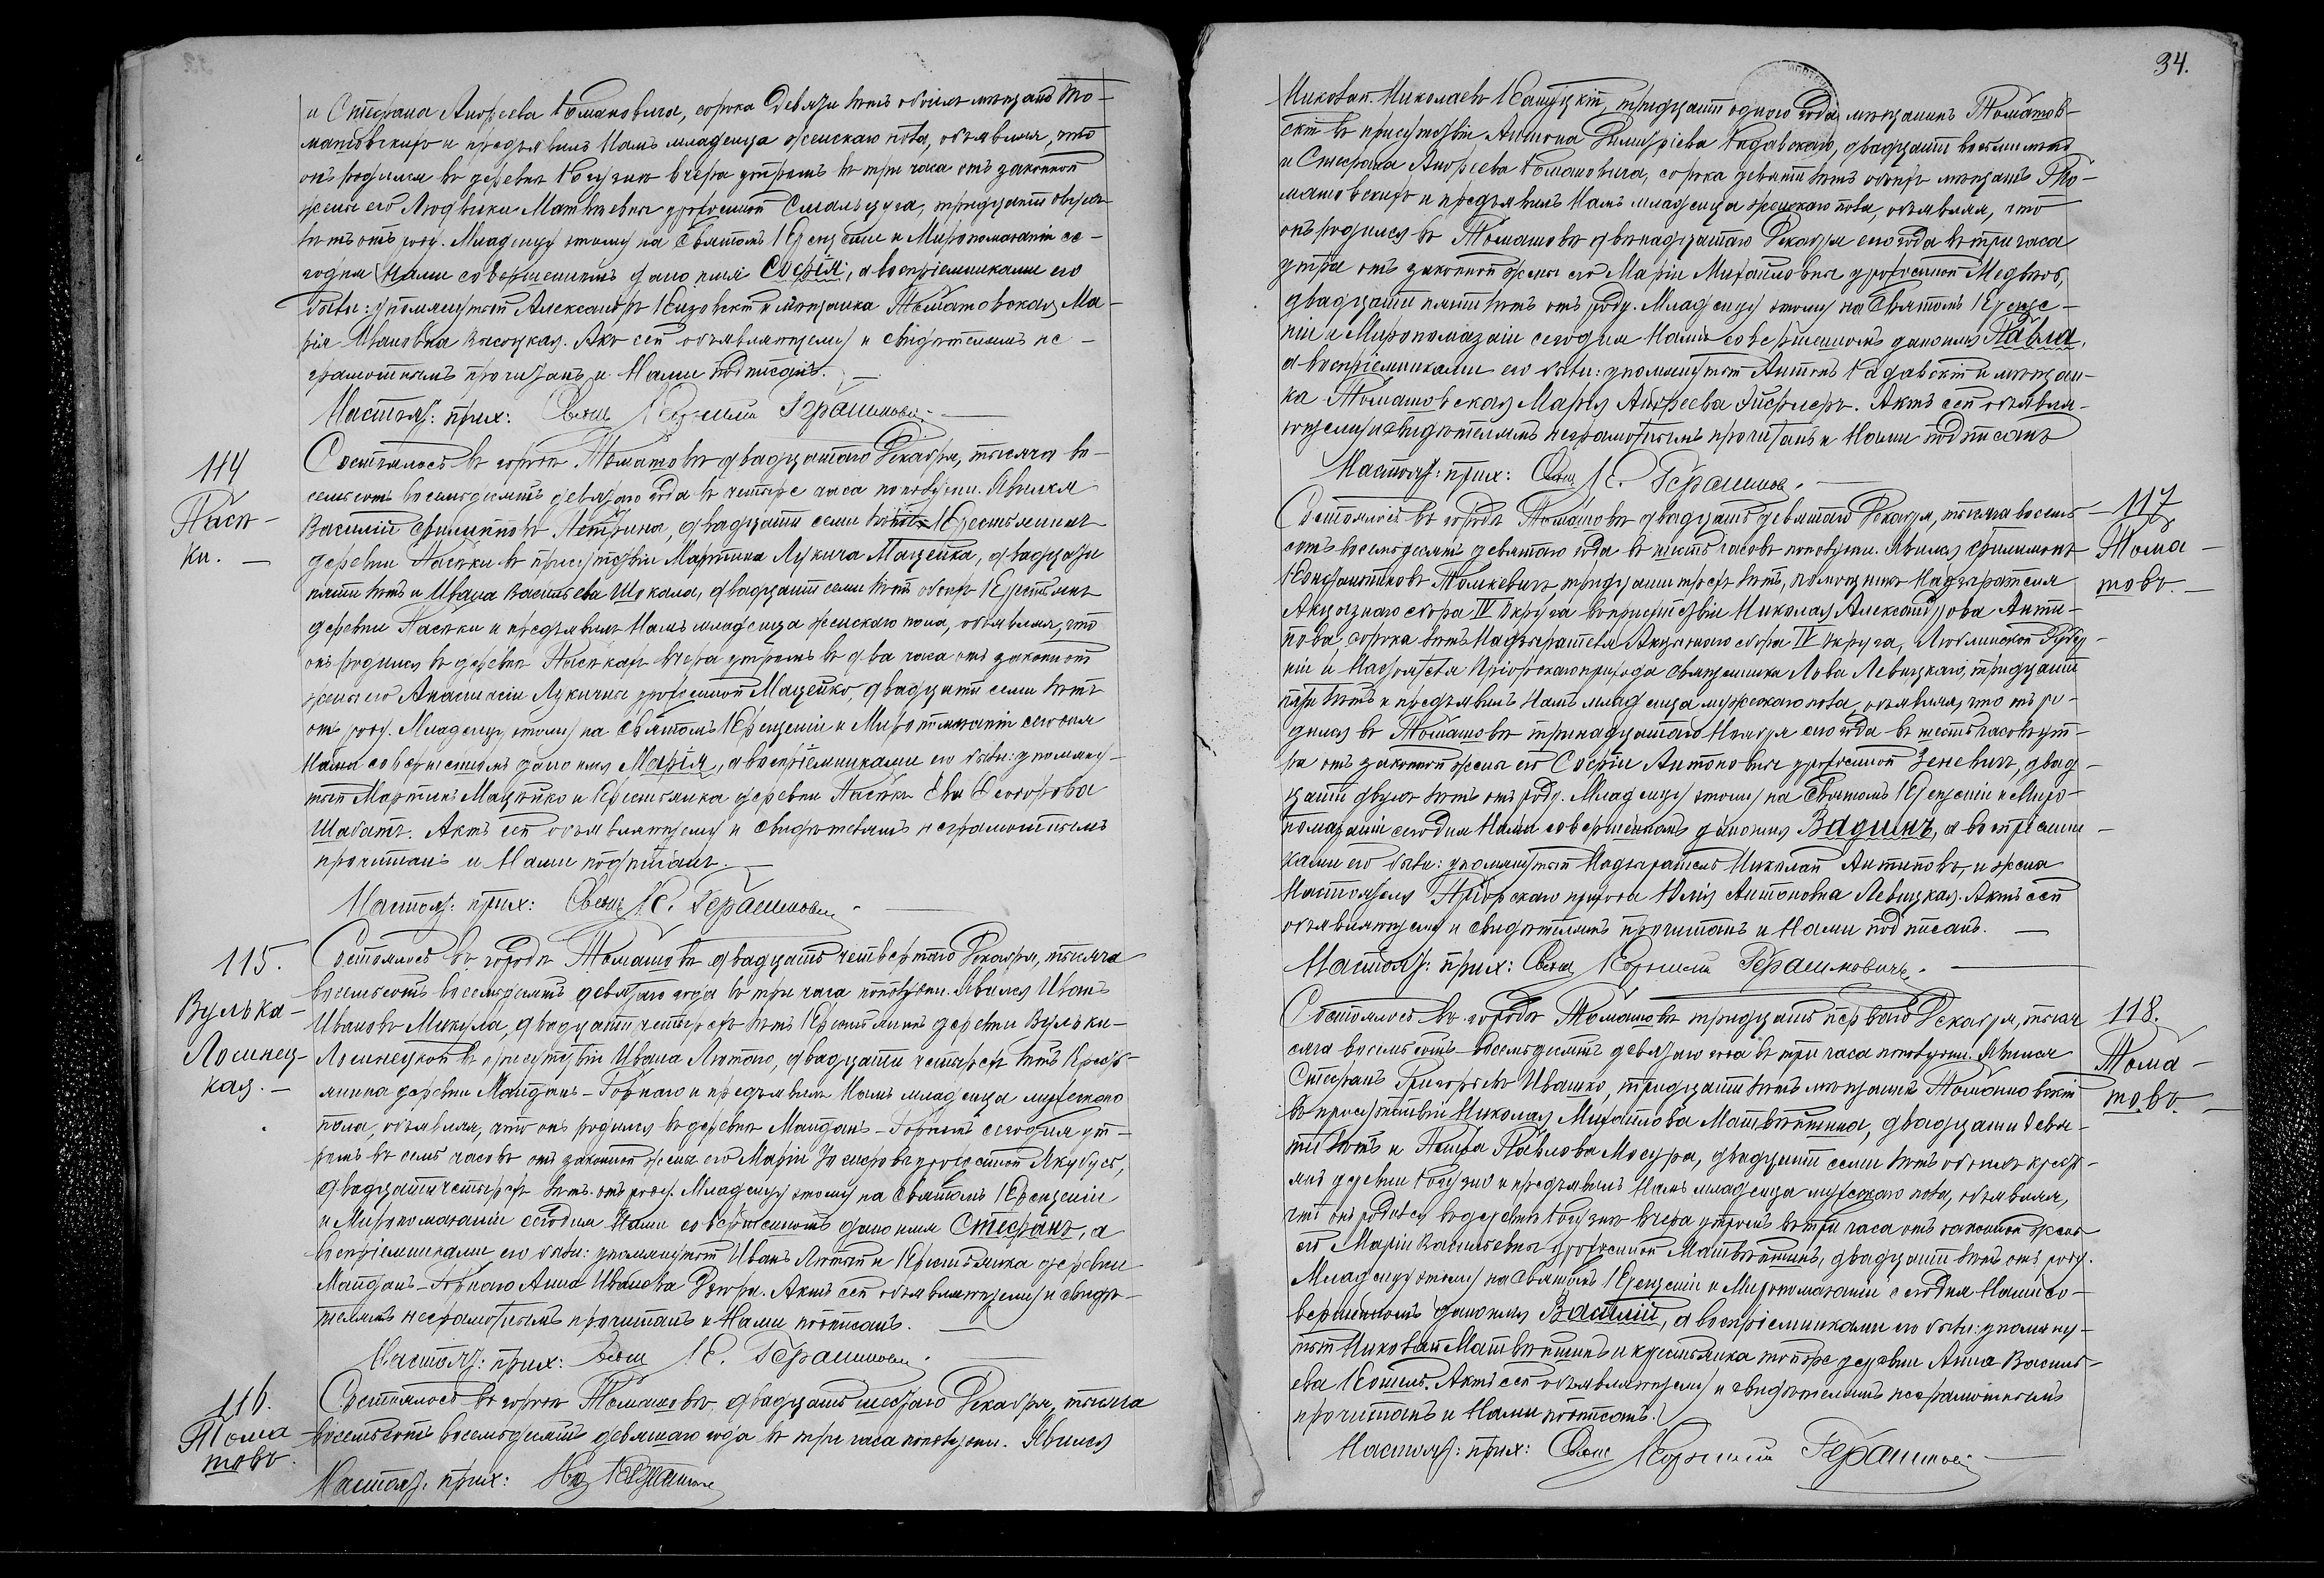 и Стефана Андреева Романовича, сорока девяти лѣтъ обоихъ мѣщанъ То-
машовскихъ и предъявилъ Намъ младенца женскаго пола, объявляя, что
онъ родился въ деревнѣ вчера утромъ въ три часа отъ законной
жены его Людвики Матвѣевны урожденной тридцати
лѣтъ отъ роду. Младенцу этому на Святомъ Крещеніи и Миропомазаніи се-
годня Нами совершенномъ дано имя Софія, а воспріемниками его
были: упомянутый Александръ и мѣщанка Томашовская Ма-
рія Ивановна Высоцкая. Актъ сей объявляющему и свидѣтелямъ не-
грамотнымъ прочитанъ и Нами подписанъ.
Настоят: прих: Свящ Корнилій Герасимовичъ
114
Пасѣ-
ки.
Состоялось въ городѣ Томашовѣ двадцатаго Декабря, тысяча во-
семьсотъ восемьдесятъ девятаго года въ четыре часа пополудни. Явился
Василій Филипповъ двадцати семи лѣтъ Крестьянинъ
деревни Пасѣки въ присутствіи Мартина Лукича Мацейка, двадцати
пяти лѣтъ и Ивана Васильева Шокала, двадцати семи лѣтъ обоихъ Крестьянъ
деревни Пасѣки и предъявилъ Намъ младенца женскаго пола, объявляя, что
онъ родился въ деревнѣ Пасѣкахъ вчера утромъ въ два часа отъ законной
жены его Анастасіи Лукичны урожденной Мацейко, двадцати семи лѣтъ
отъ роду. Младенцу этому на Святомъ Крещеніи и Миропомазаніи сегодня
Нами совершенномъ дано имя Марія, а воспріемниками его были: упомяну-
тый Мартинъ Мацейко и Крестьянка деревни Пасѣки Ева Ѳеодорова
Шабатъ. Актъ сей объявляющему и свидѣтелямъ неграмотнымъ
прочитанъ и Нами подписанъ.
Настоят: прих: Свящ К. Герасимовичъ
115.
Вулька-
Лосинец-
кая.
Состоялось въ городѣ Томашовѣ двадцать четвертаго Декабря, тысяча
восемьсотъ восемьдесятъ девятаго года въ три часа пополудни. Явился Иванъ
Ивановъ Микула, двадцати четырехъ лѣтъ Крестьянинъ деревни Вульки-
Лосинецкой въ присутствіи Ивана Лютаго, двадцати четырехъ лѣтъ Кресть-
янина деревни Майданъ-Горнаго и предъявилъ Намъ младенца мужескаго
пола, объявляя, что онъ родился въ деревнѣ Майданъ-Горномъ сегодня ут-
ромъ въ семь часовъ отъ законной жены его Маріи урожденной Якубусъ,
двадцати четырехъ лѣтъ отъ роду. Младенцу этому на Святомъ Крещеніи
и Миропомазаніи сегодня Нами совершенномъ дано имя Стефанъ, а
воспріемниками его были: упомянутый Иванъ Лютый и Крестьянка деревни
Майданъ-Горнаго Анна Иванова Дзюра. Актъ сей объявляющему и свидѣ-
телямъ неграмотнымъ прочитанъ и Нами подписанъ.
Настоят: прих: Свящ К. Герасимовичъ
116.
Тома
шовъ.
Состоялось въ городѣ Томашовѣ двадцать шестаго Декабря, тысяча
восемьсотъ восемьдесятъ девятаго года въ три часа пополудни. Явился
Настоят. прих:
34.
Николай Николаевъ тридцати одного года мѣщанинъ Томашов-
скій въ присутствіи Антона Димитріева Гадавскаго, двадцати восьми лѣтъ
и Стефана Андреева Романовича, сорока девяти лѣтъ обоихъ мѣщанъ То-
машовскихъ и предъявилъ Намъ младенца женскаго пола, объявляя, что
онъ родился въ Томашовѣ двѣнадцатаго Декабря сего года въ три часа
утра отъ законной жены его Маріи Михайловны урожденной
двадцати пяти лѣтъ отъ роду. Младенцу этому на Святомъ Креще-
ніи и Миропомазаніи сегодня Нами совершенномъ дано имя
а воспріемниками его были: упомянутый Антонъ Гадавскій и мѣщан-
ка Томашовская Марія Андреева Актъ сей объявля-
ющему и свидѣтелямъ неграмотнымъ прочитанъ и Нами подписанъ
Настоят: прих: Свящ К. Герасимов.
117
Тома-
шовъ.
Состоялось въ городѣ Томашовѣ двадцать девятаго Декабря, тысяча восемь-
сотъ восемьдесятъ девятаго года въ шесть часовъ пополудни. Явился Филимонъ
Томкевичъ тридцати трехъ лѣтъ, помощникъ Надзирателя
Акцизнаго сбора IV Округа въ присутствіи Николая Александрова Анти-
пова, сорока лѣтъ Надзирателя Акцизнаго сбора IV Округа, Люблинской Губер-
ніи и Настоятеля прихода священника Льва Левицкаго, тридцати
лѣтъ и предъявилъ Намъ младенца мужескаго пола, объявляя, что онъ ро-
дился въ Томашовѣ тринадцатаго Ноября сего года въ шесть часовъ ут-
ра отъ законной жены его Софіи Антоновны урожденной Зеневичъ, двад-
цати двухъ лѣтъ отъ роду. Младенцу этому на Святомъ Крещеніи и Миро-
помазаніи сегодня Нами совершенномъ дано имя Вадимъ, а воспріемни-
ками его были: упомянутый Надзиратель Николай Антиповъ, и жена
Настоятеля прихода Юлія Антоновна Левицкая. Актъ сей
объявляющему и свидѣтелямъ прочитанъ и Нами подписанъ.
Настоят: прих: Свящ Корнилій Герасимовичъ.
118.
Тома-
шовъ.
Состоялось въ городѣ Томашовѣ тридцать перваго Декабря, тыся
сяча восемьсотъ восемьдесятъ девятаго года въ три часа пополудни. Явился
Стефанъ Григорьевъ Ивашко, тридцати лѣтъ мѣщанинъ Томашовскій
въ присутствіи Николая Михайлова Матвѣйшина, двадцати девя-
ти лѣтъ и Петра Павлова Мосура, двадцати семи лѣтъ обоихъ кресть-
янъ деревни и предъявилъ Намъ младенца мужескаго пола, объявляя,
что онъ родился въ деревнѣ вчера утромъ въ три часа отъ законной жены
его Маріи Васильевны урожденной Матвѣйшинъ, двадцати лѣтъ отъ роду.
Младенцу этому на Святомъ Крещеніи и Миропомазаніи сегодня Нами со-
вершенномъ дано имя Василій, а воспріемниками его были: упомяну-
тый Николай Матвѣйшинъ и крестьянка той же деревни Анна Василь-
ева Кошель. Актъ сей объявляющему и свидѣтелямъ неграмотнымъ
прочитанъ и Нами подписанъ.
Настоят: прих: Свящ Корнилій Герасимович